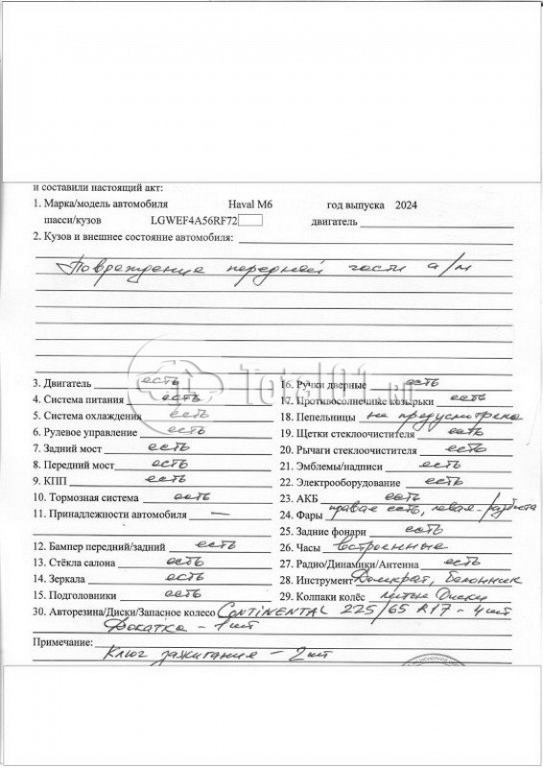 и составили настоящий акт:
1. Марка/модель автомобиля Haval M6 год выпуска 2024
шасси/кузов LGWEF4A56RF72 двигатель
2. Кузов и внешнее состояние автомобиля:
Повреждение передней части а/м
Total01.ru
3. Двигатель есть
4. Система питания есть
5. Система охлаждения есть
6. Рулевое управление есть
7. Задний мост есть
8. Передний мост есть
9. КПП есть
10. Тормозная система есть
11. Принадлежности автомобиля —
12. Бампер передний/задний есть
13. Стёкла салона есть
14. Зеркала есть
15. Подголовники есть
16. Ручки дверные есть
17. Противосолнечные козырьки есть
18. Пепельницы не предусмотрена
19. Щетки стеклоочистителя есть
20. Рычаги стеклоочистителя есть
21. Эмблемы/надписи есть
22. Электрооборудование есть
23. АКБ есть
24. Фары правая есть, левая - разбита
25. Задние фонари есть
26. Часы встроенные
27. Радио/Динамики/Антенна есть
28. Инструмент Домкрат, Балонник
29. Колпаки колёс литые Диски
30. Авторезина/Диски/Запасное колесо CONTINENTAL 225/65 R17 - 4 шт
Докатка - 1 шт
Примечание:
Ключ зажигания - 2 шт